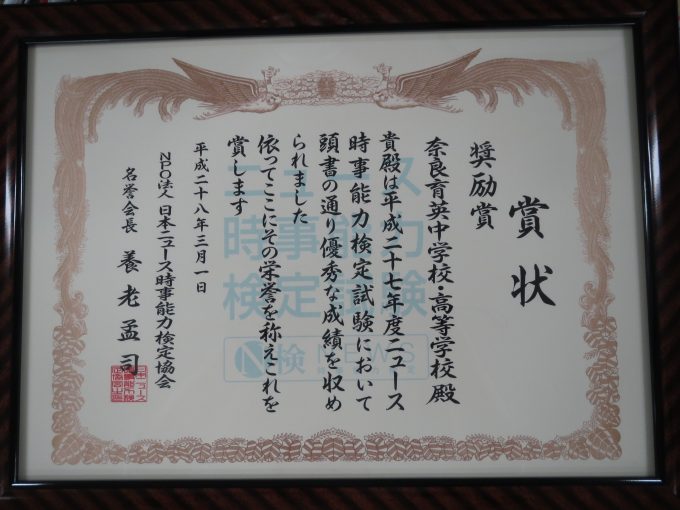 賞状
奨励賞
奈良育英中学校・高等学校殿
貴殿は平成二十七年度ニュース
時事能力検定試験において
頭書の通り優秀な成績を収め
られました
依ってここにその栄誉を称えこれを
賞します
平成二十八年三月一日
NPO法人 日本ニュース時事能力検定協会
名誉会長 養老孟司
ニュース
時事能力
検定試験
N検 NEWS